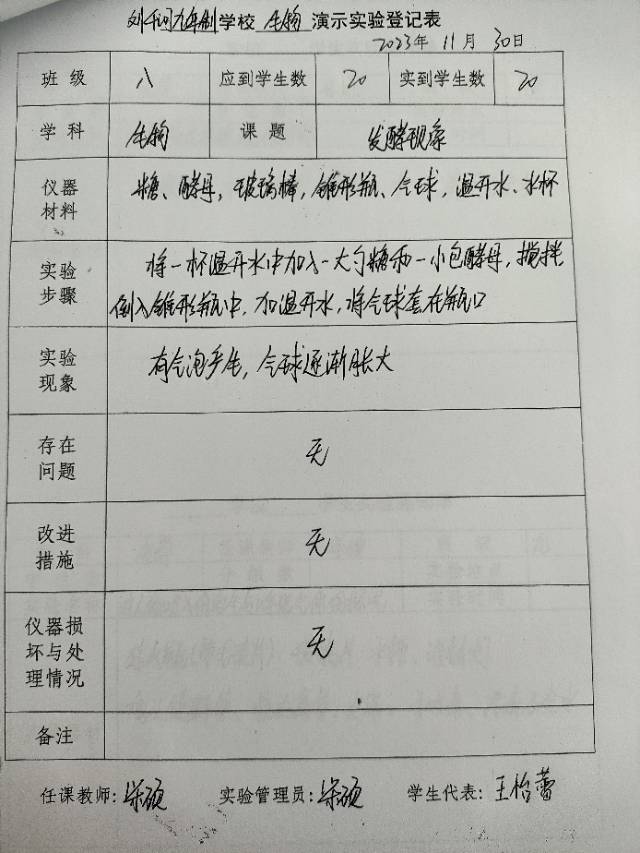 九年制学校 生物 演示实验登记表
2023年 11月 30日
班级 八 应到学生数 20 实到学生数 20
学科 生物 课题 发酵现象
仪器材料 糖、酵母,玻璃棒,锥形瓶、气球,温开水、水杯
实验步骤 将一杯温开水中加入一大勺糖和一小包酵母,搅拌
倒入锥形瓶中,加温开水,将气球套在瓶口
实验现象 有气泡产生,气球逐渐胀大
存在问题 无
改进措施 无
仪器损坏与处理情况 无
备注
任课教师: 实验管理员: 学生代表:王怡蕾